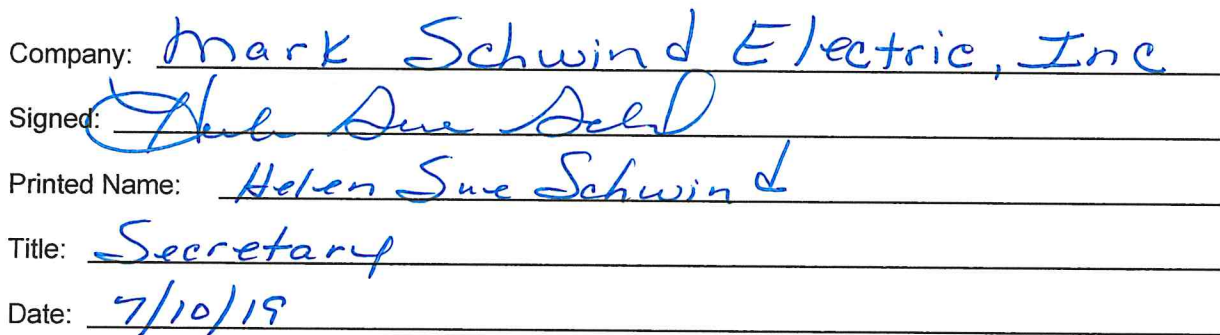 Company: Mark Schwind Electric, Inc
Signed: Helen Sue Schwind
Printed Name: Helen Sue Schwind
Title: Secretary
Date: 7/10/19